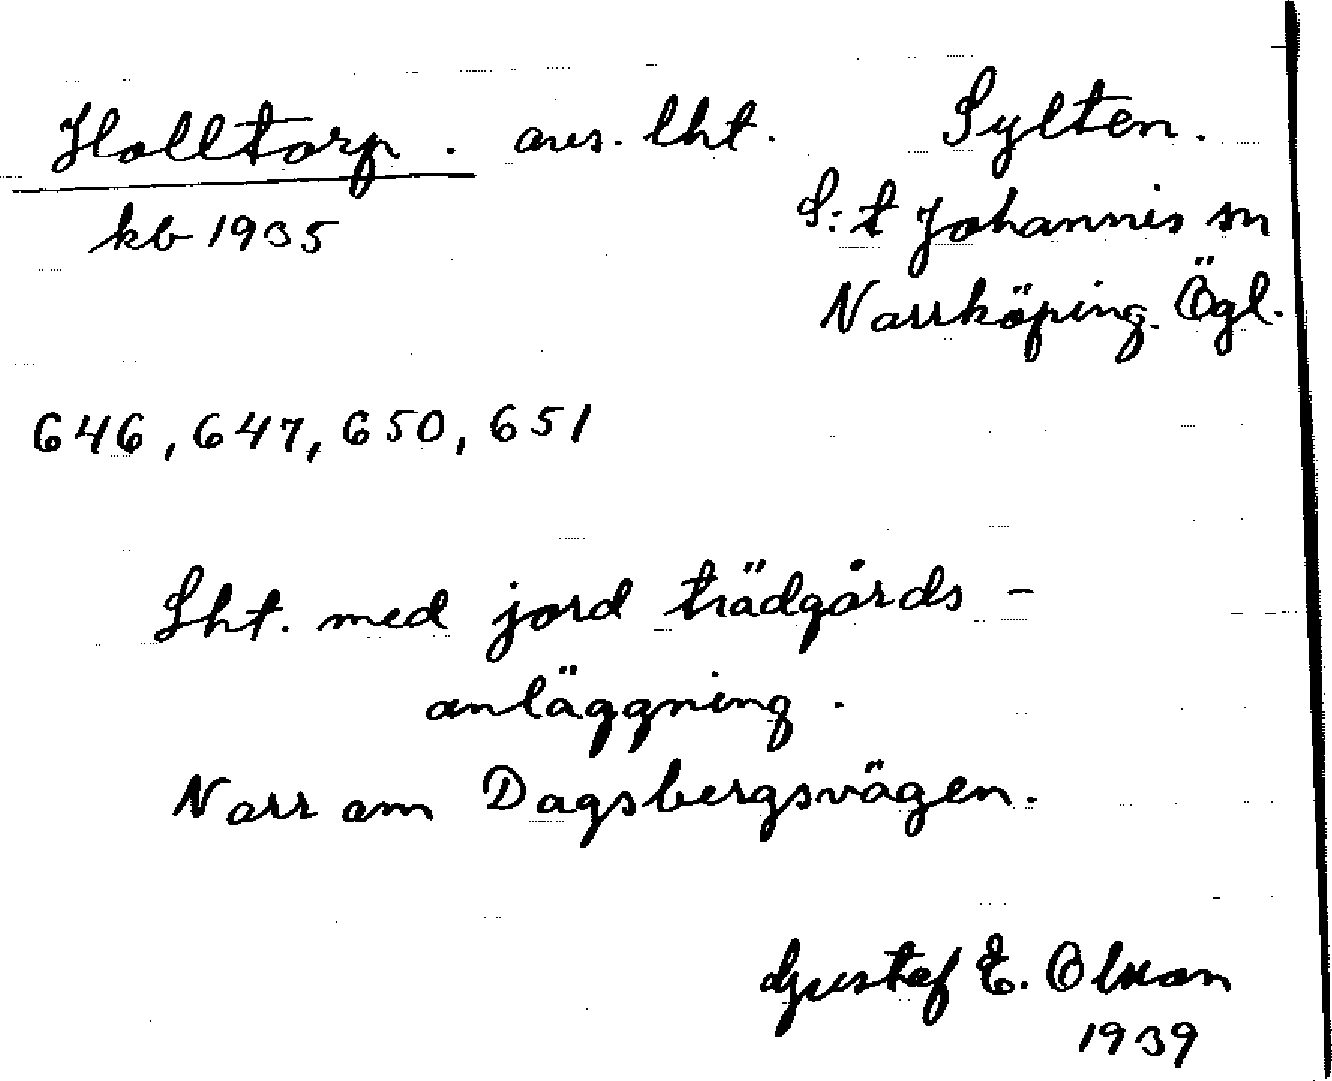 Holltorp. avs. lht. Sylten.
kb 1935 S:t Johannis sn
Norrköping. Ögl.
646, 647, 650, 651
Lht. med jord trädgårds-
anläggning.
Norr om Dagsbergsvägen.
Gustaf E. Olsson
1939